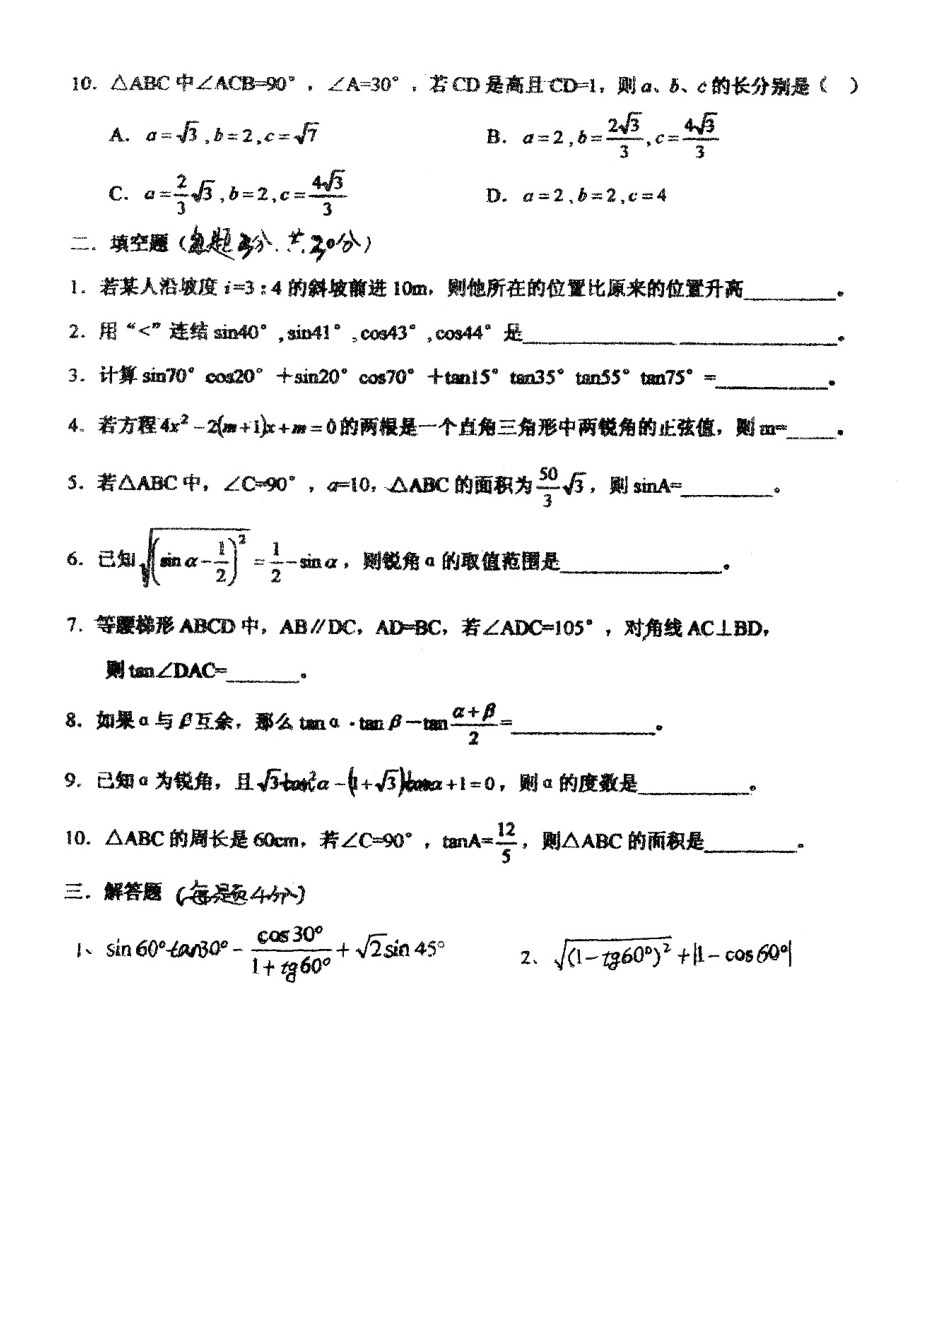 10．△ABC 中∠ACB=90°，∠A=30°，若 CD 是高且 CD=1，则 a、b、c 的长分别是（ ）
A．a=√3,b=2,c=√7 B．a=2,b=2√3/3,c=4√3/3
C．a=2/3√3,b=2,c=4√3/3 D．a=2,b=2,c=4
二．填空题（每题3分、共30分）
1．若某人沿坡度 i=3：4 的斜坡前进 10m，则他所在的位置比原来的位置升高______。
2．用“<”连结 sin40°,sin41°,cos43°,cos44°是______ ______。
3．计算 sin70°cos20°＋sin20°cos70°＋tan15°tan35°tan55°tan75°=______。
4．若方程 4x²-2(m+1)x+m=0 的两根是一个直角三角形中两锐角的正弦值，则 m=______．
5．若△ABC 中，∠C=90°，a=10，△ABC 的面积为 50/3√3，则 sinA=______。
6．已知√((sin α-1/2)²)=1/2-sin α，则锐角 α 的取值范围是______。
7．等腰梯形 ABCD 中，AB∥DC，AD=BC，若∠ADC=105°，对角线 AC⊥BD，
则 tan∠DAC=______。
8．如果 α 与 β 互余，那么 tan α·tan β－tan (α+β)/2=______。
9．已知 α 为锐角，且√3tan²α-(1+√3)tanα+1=0，则 α 的度数是______。
10．△ABC 的周长是 60cm，若∠C=90°，tanA=12/5，则△ABC 的面积是______。
三．解答题（每题4分）
1、sin60°tan30°-cos30°/(1+tg60°)+√2sin45° 2、√((1-tg60°)²)+|1-cos60°|